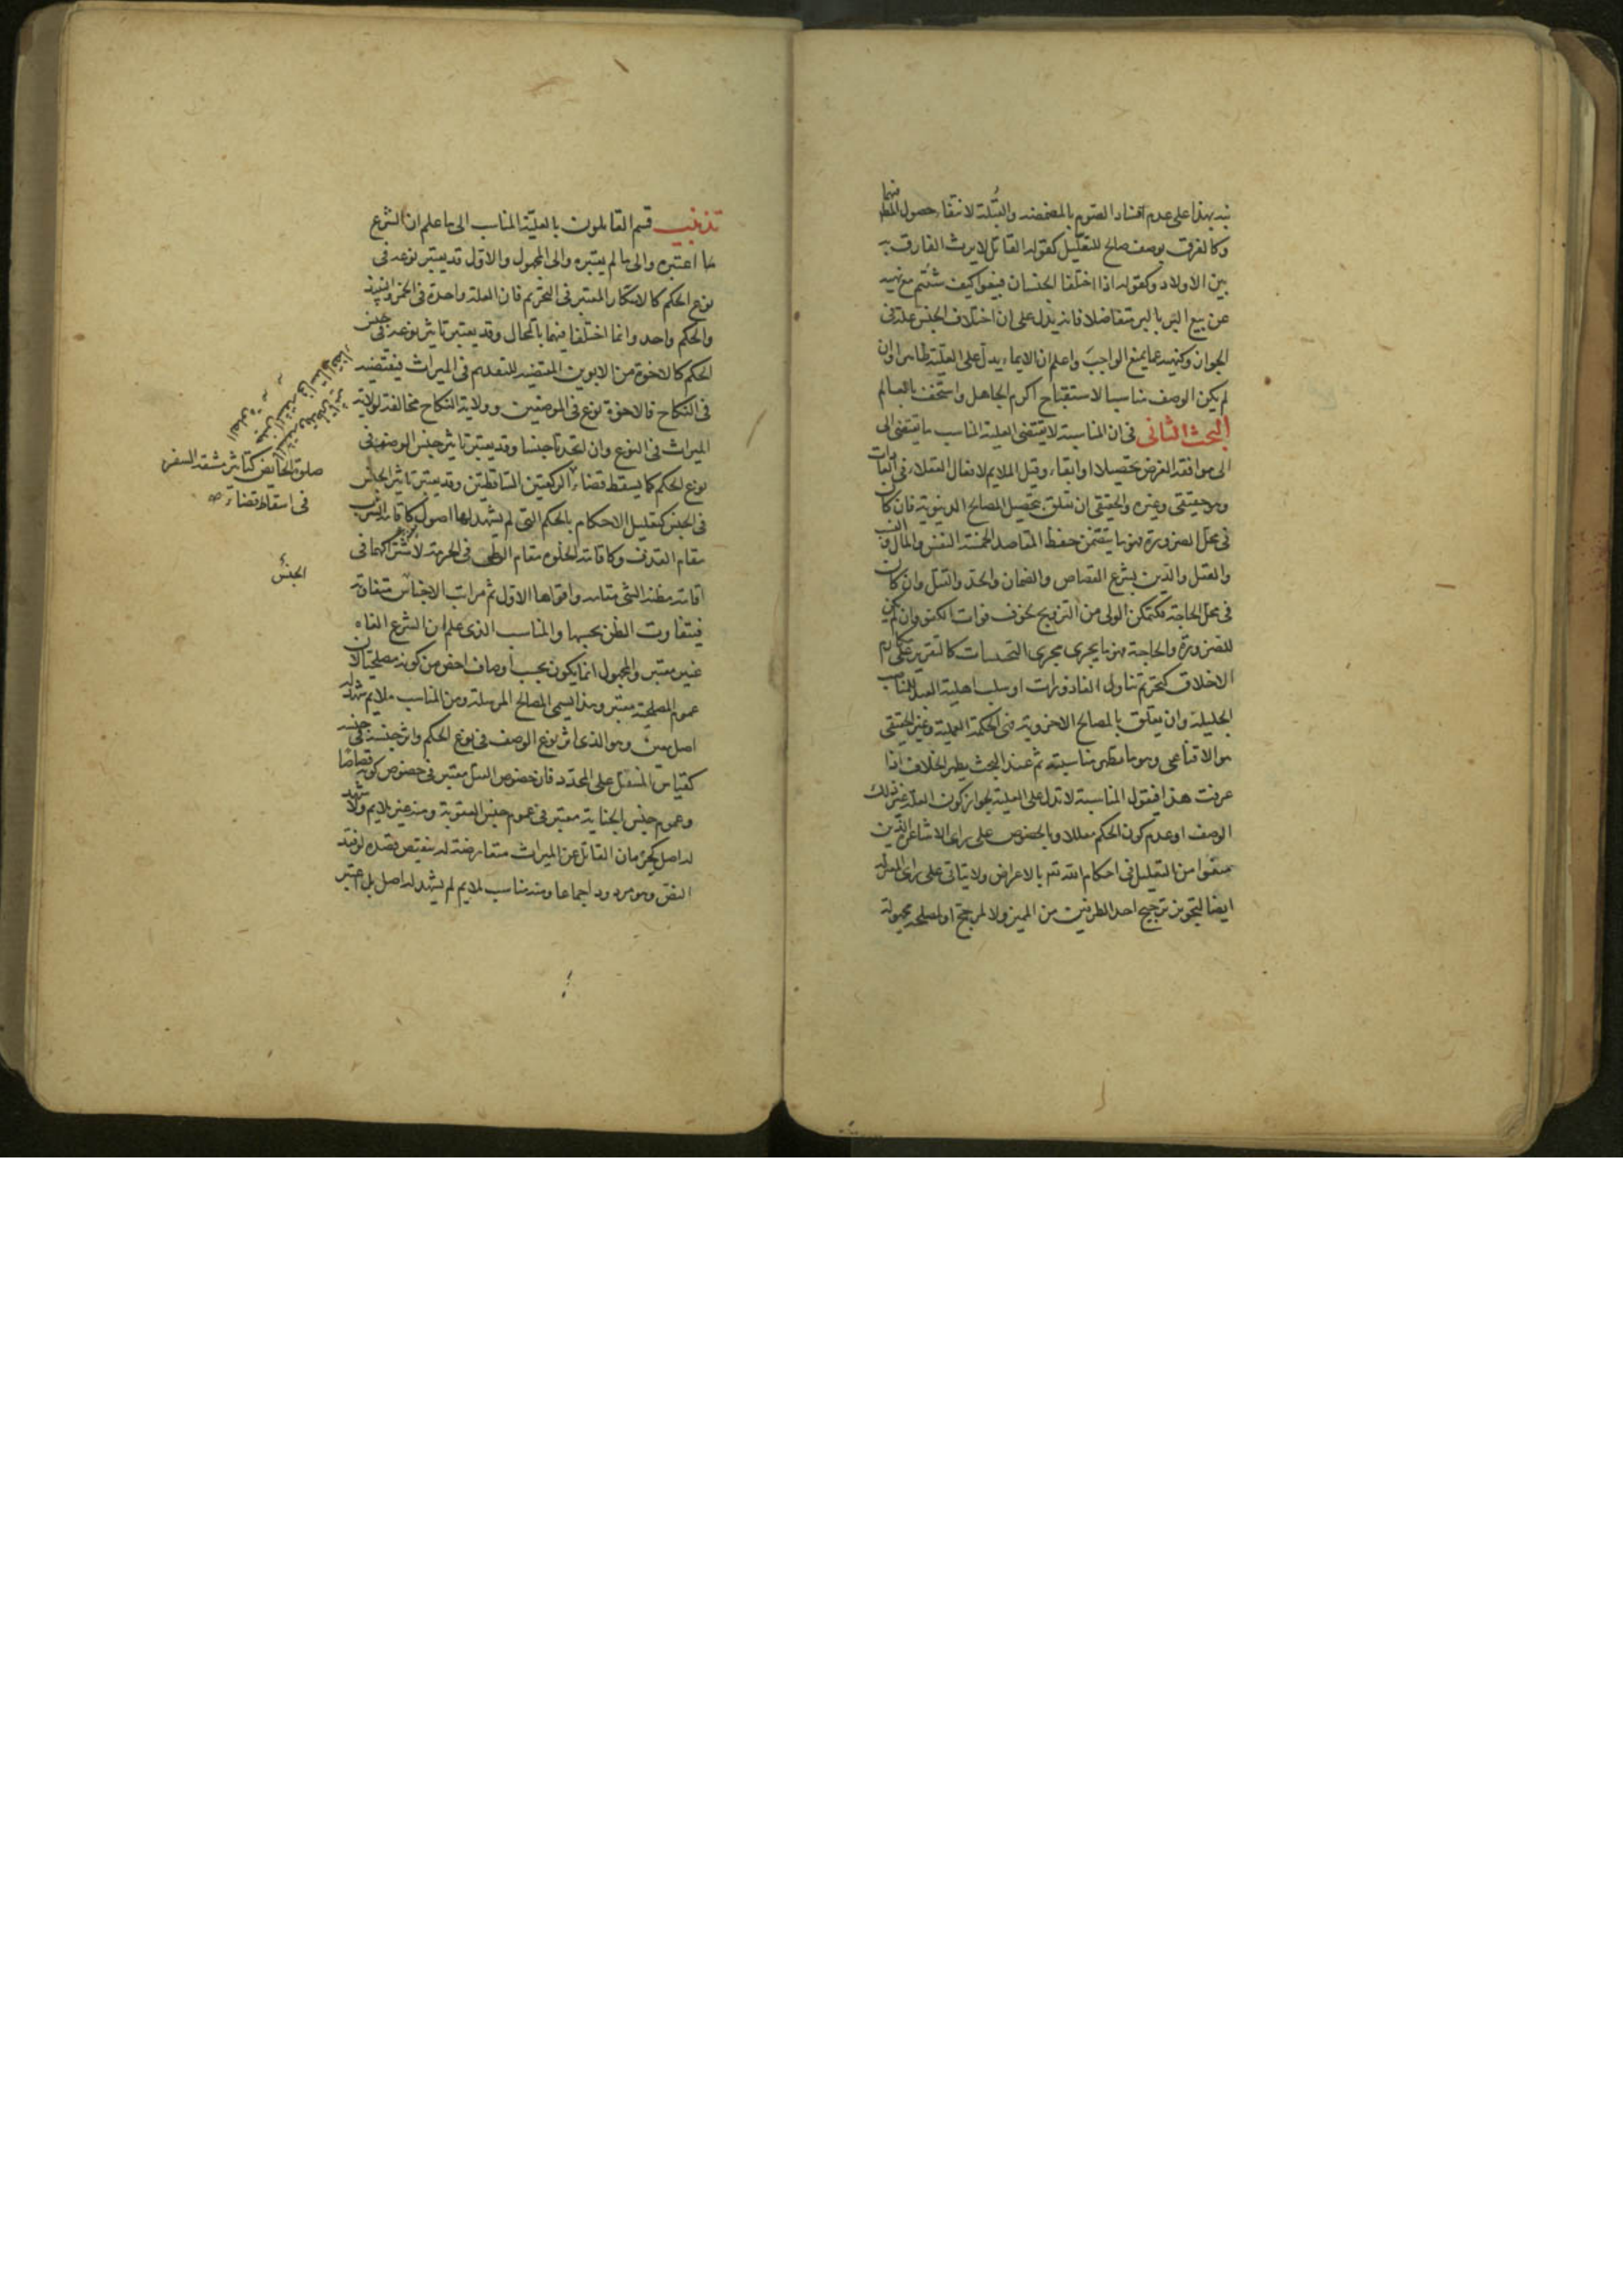 نبه بهذا على عدم افساد الصوم بالمضمضه والقُبلة لانتفاء حصول المط فيهما
وكالفرق بوصف صالح للتعليل كقوله القاتل لا يرث الفارق به
بين الاولاد وكقوله اذا اختلفا الجنسان فبيعوا كيف شئتم مع نهيه
عن بيع البر بالبر متفاضلا فانه يدل على ان اختلاف الجنس علة في
الجواز وكنهيه عما يمنع الواجب واعلم ان الايماء يدل على العلية ظاهرا وان
لم يكن الوصف مناسبا لاستقباح اكرم الجاهل واستخف بالعالم
البحث الثانى فى ان المناسبة لا يقتضى العلية المناسب ما يقتضى الى
الى موافقه الغرض تحصيلا او ابقاء وقيل الملايم لافعال العقلاء فى العادات
وهو حقيقى وغيره والحقيقى ان تعلق بتحصيل المصالح الدنيوية فان كان
فى محل الضرورة فهو ما يتضمن حفظ المقاصد الخمسة النفس والمال والنسب
والعقل والدين بشرع القصاص والضمان والحد والقتل وان كان
فى محل الحاجة فكتمكن الولى من التزويج لخوف فوات الكفو وان لم يكن
للضرورة والحاجة فهو ما يجرى مجرى التحسينات كالتقرير على مكارم
الاخلاق كتحريم تناول القاذورات او سلب اهلية العبد للمناصب
الجليلة وان يتعلق بالمصالح الاخروية فهى الحكمة العملية وغير الحقيقى
هو الاقناعى وهو ما يظهر مناسبته ثم عند البحث يظهر الخلاف اذا
عرفت هذا فيقول المناسبة لا تدل على العلية لجواز كون العلة غير ذلك
الوصف او عدم كون الحكم معللا وبالخصوص على راى الاشاعرة الذين
منعوا من التعليل فى احكام الله تعـ بالاعراض ولا يتاتى على راى المعتزله
ايضا لتجويز ترجيح احد الطرفين من المميز ولا لمرجح او لمصلحة مجهولة
تذنيب قسم القايلون بالعلية المناسب الى ما علم ان الشرع
ما اعتبره والى ما لم يعتبره والى المجهول والاول قد يعتبر نوعه فى
نوع الحكم كالاسكار المعتبر فى التحريم فان العلة واحدة فى الخمر والنبيذ
والحكم واحد وانما اختلفا فيهما بالمحال وقد يعتبر تاثير نوعه فى جنس
الحكم كالاخوة من الابوين المقتضيه للتقديم فى الميراث فيقتضيه
فى النكاح فالاخوة نوع فى الموضعين وولاية النكاح مخالفة لولاية
الميراث فى النوع وان اتحدتا جنسا وقد يعتبر تاثير جنس الوصف فى
نوع الحكم كما يسقط قضاء الركعتين الساقطتين وقد يعتبر تاثير الجنس
فى الجنس كتعليل الاحكام بالحكم التى لم يشهد لها اصول كاقامة الشرب
مقام القذف وكاقامة الخلوه مقام الوطى فى الحرمة لاشتراكهما فى
اقامة مظنة الشى مقامه واقواها الاول ثم مراتب الاجناس متفاوتة
فيتفاوت الظن بحسبها والمناسب الذى علم ان الشرع الغاه
غير معتبر والمجهول انما يكون بحسب اوصاف اخص من كونه مصلحة لان
عموم المصلحة معتبر وهذا يسمى المصالح المرسلة ومن المناسب ملايم شهد له
اصل معين وهو الذى اثر نوع الوصف فى نوع الحكم واثر جنسه فى جنسه
كقياس المثقل على المحدد فان خصوص القتل معتبر فى خصوص كونه قصاصا
وعموم جنس الجناية معتبر فى عموم جنس العقوبة ومنه غير ملايم ولا شهد
له اصل كحرمان القاتل عن الميراث معارضة له بنقيض قصده لو فقد
النص وهو مردود اجماعا ومنه مناسب ملايم لم يشهد له اصل بل اعتبر
صلوة الحايض كتاثير مشقه السفر
فى اسقاط قضاء صح
الجنس